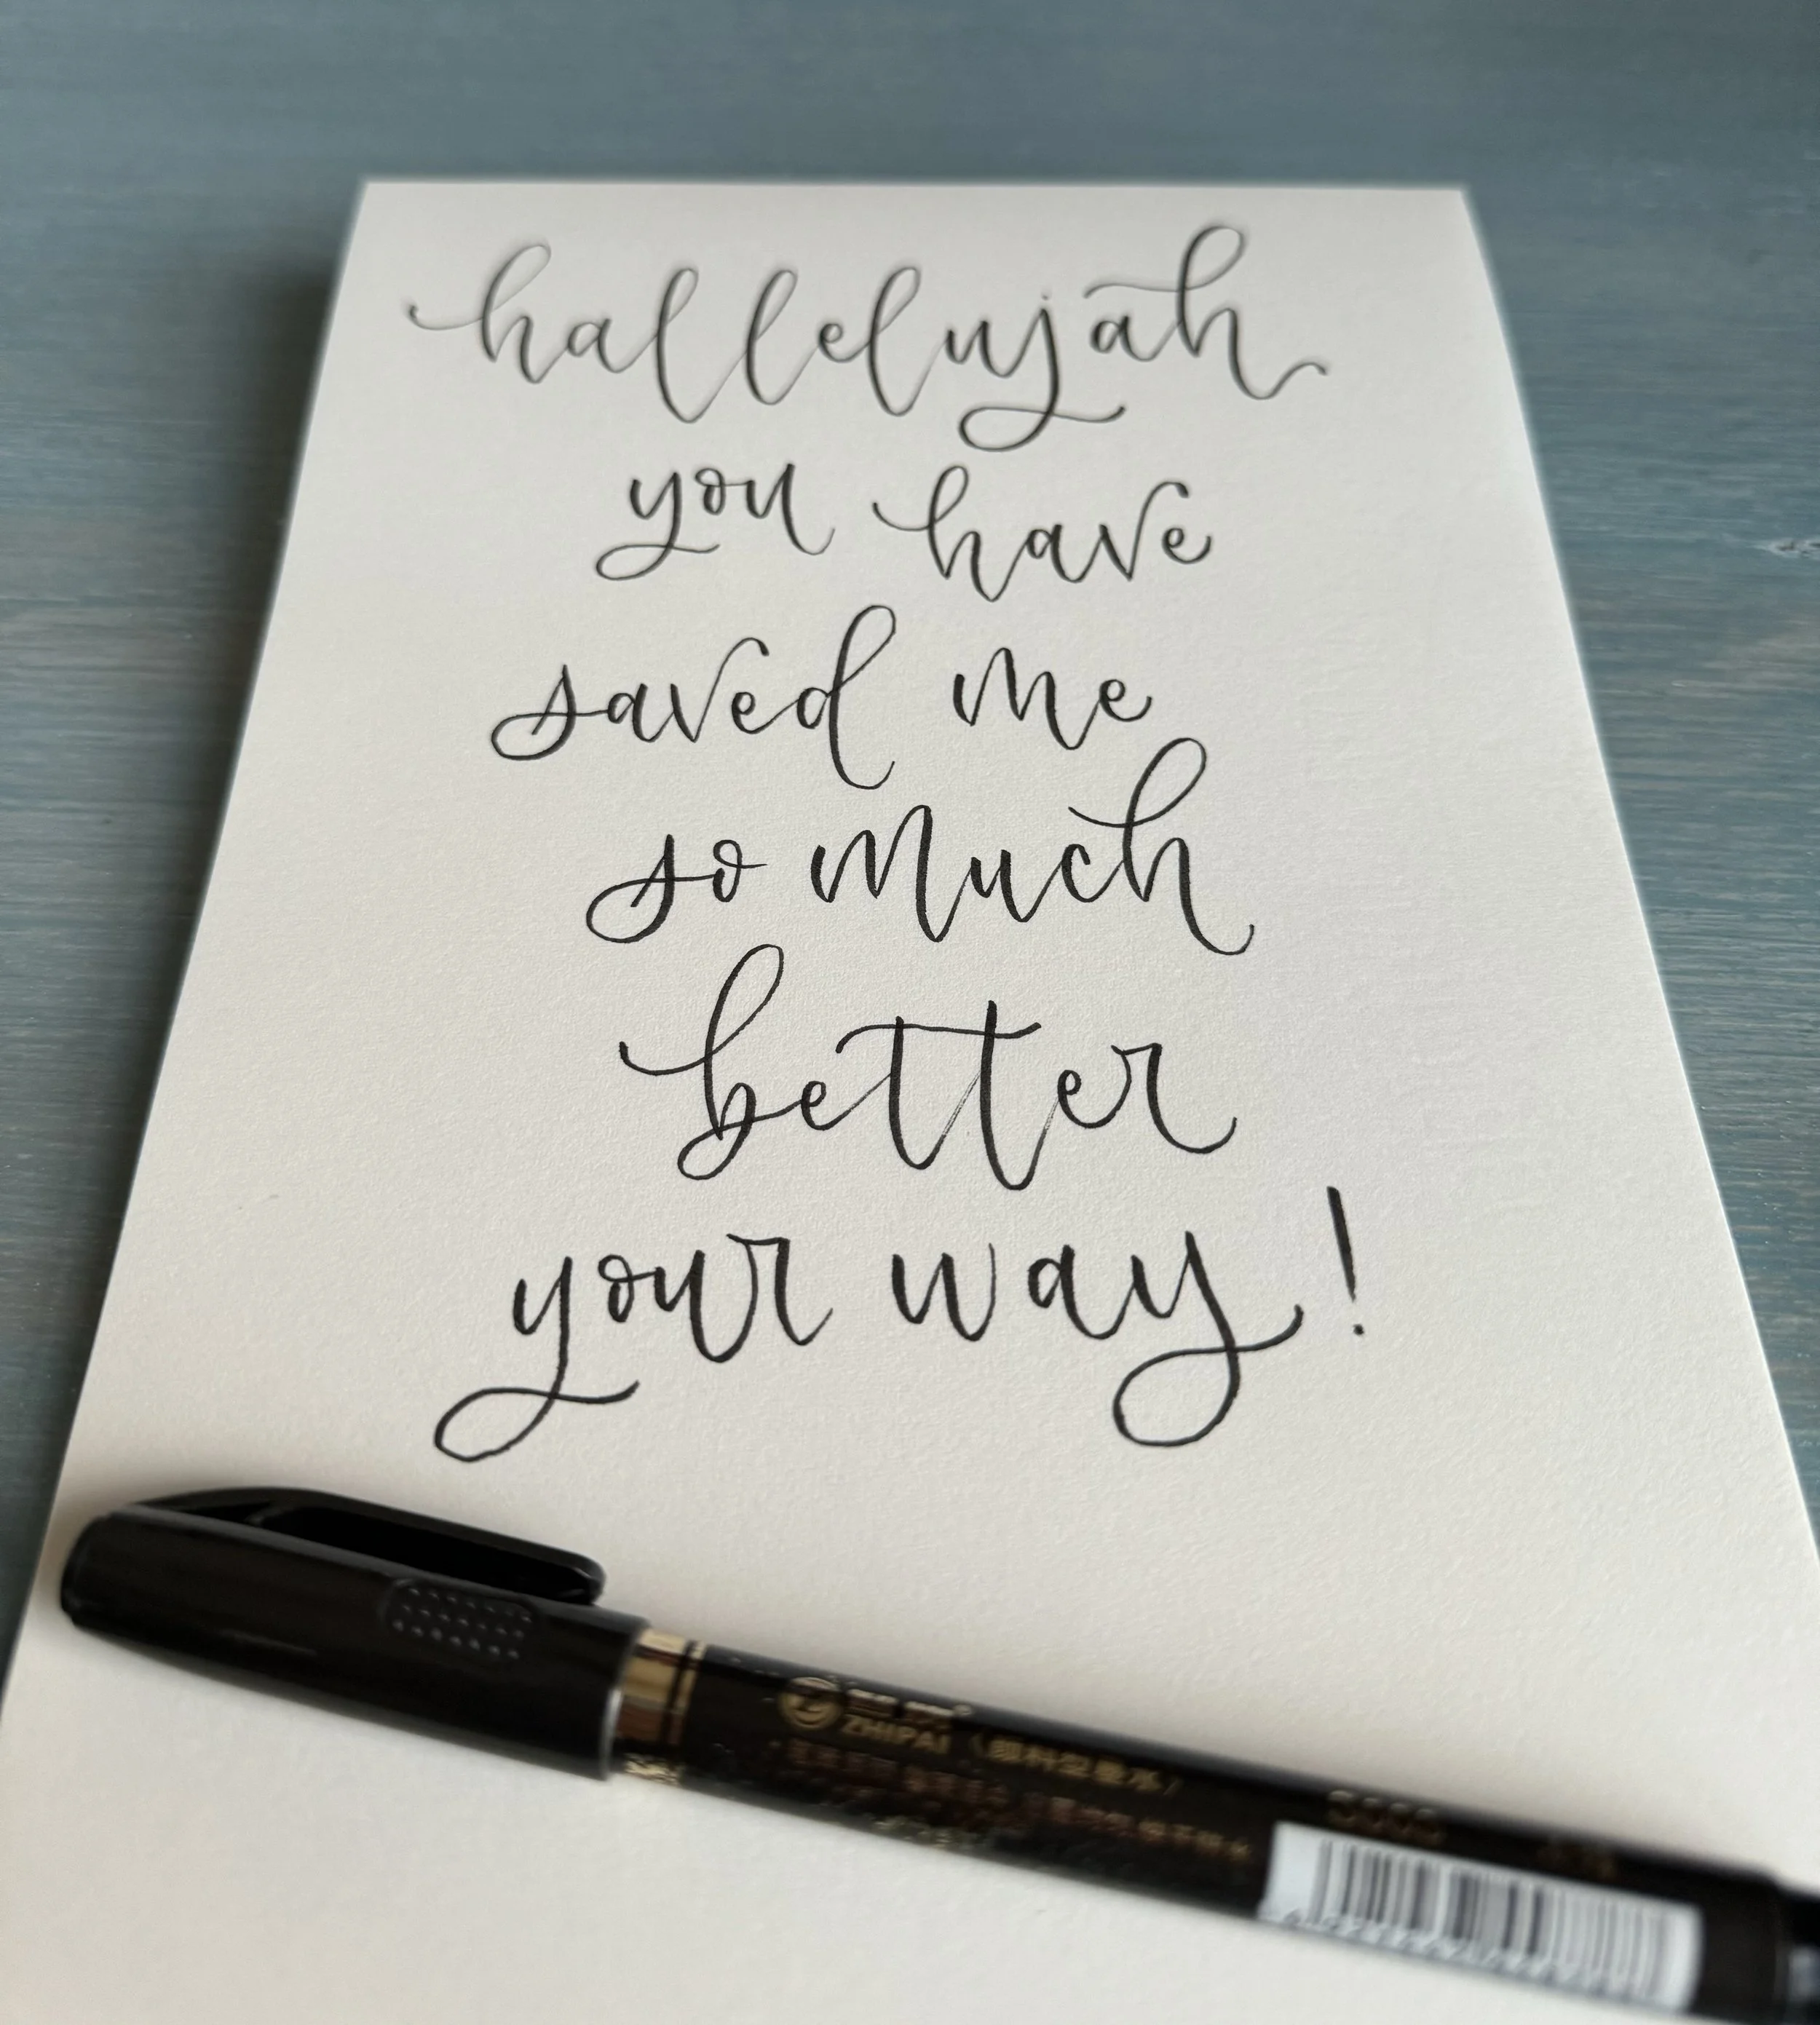 hallelujah
you have
saved me
so much
better
your way!
ZHIPAI